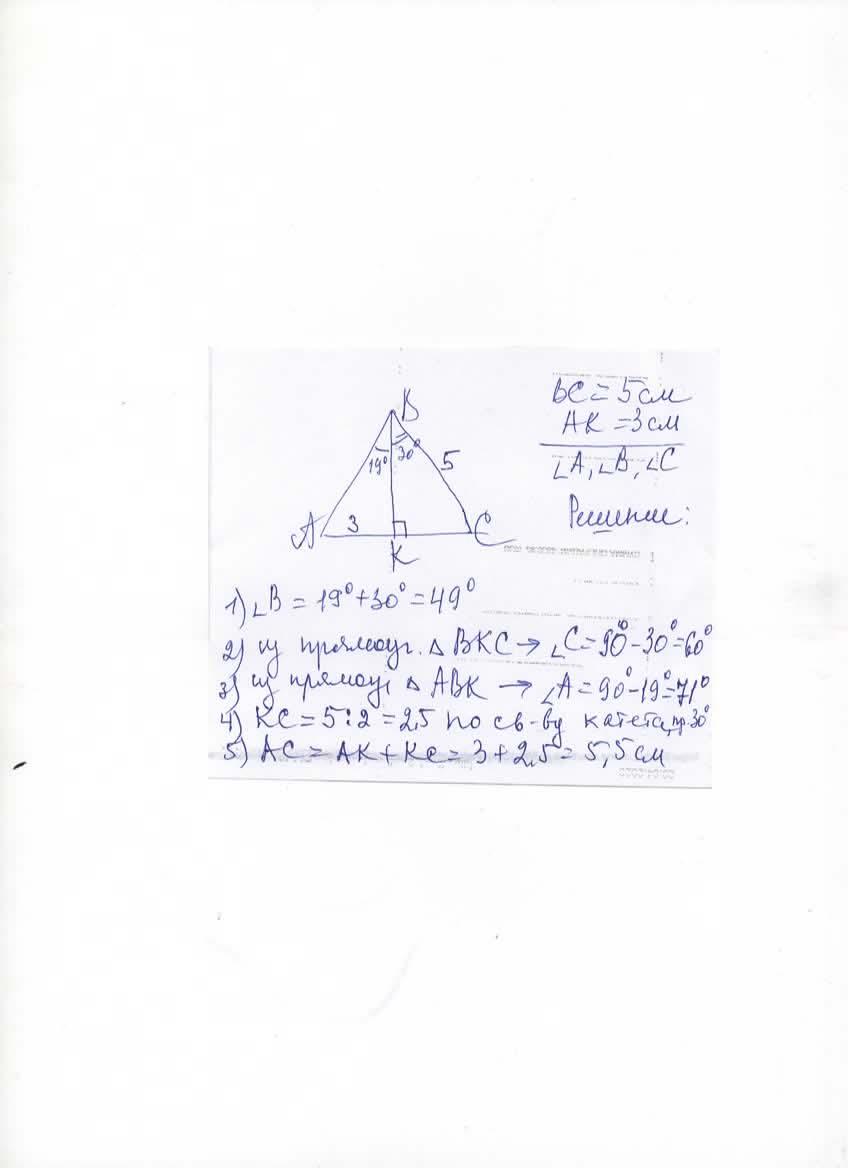 B
19° 30°
5
A 3 C
K
BC = 5 см
AK = 3 см
∠A, ∠B, ∠C
Решение:
1) ∠B = 19° + 30° = 49°
2) из прямоуг. △ BKC → ∠C = 90° - 30° = 60°
3) из прямоуг △ ABK → ∠A = 90° - 19° = 71°
4) KC = 5:2 = 2,5 по св-ву катета, пр. 30°
5) AC = AK + KC = 3 + 2,5 = 5,5 см